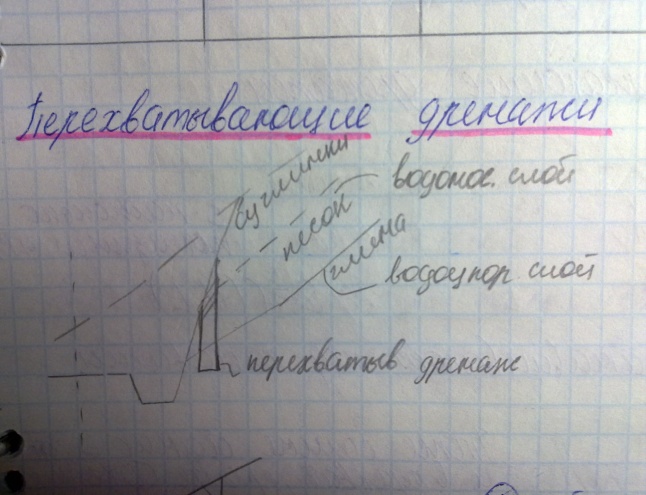 Перехватывающие дренажи
суглинки
водонос. слой
песок
глина
водоупор слой
перехватыв дренаж